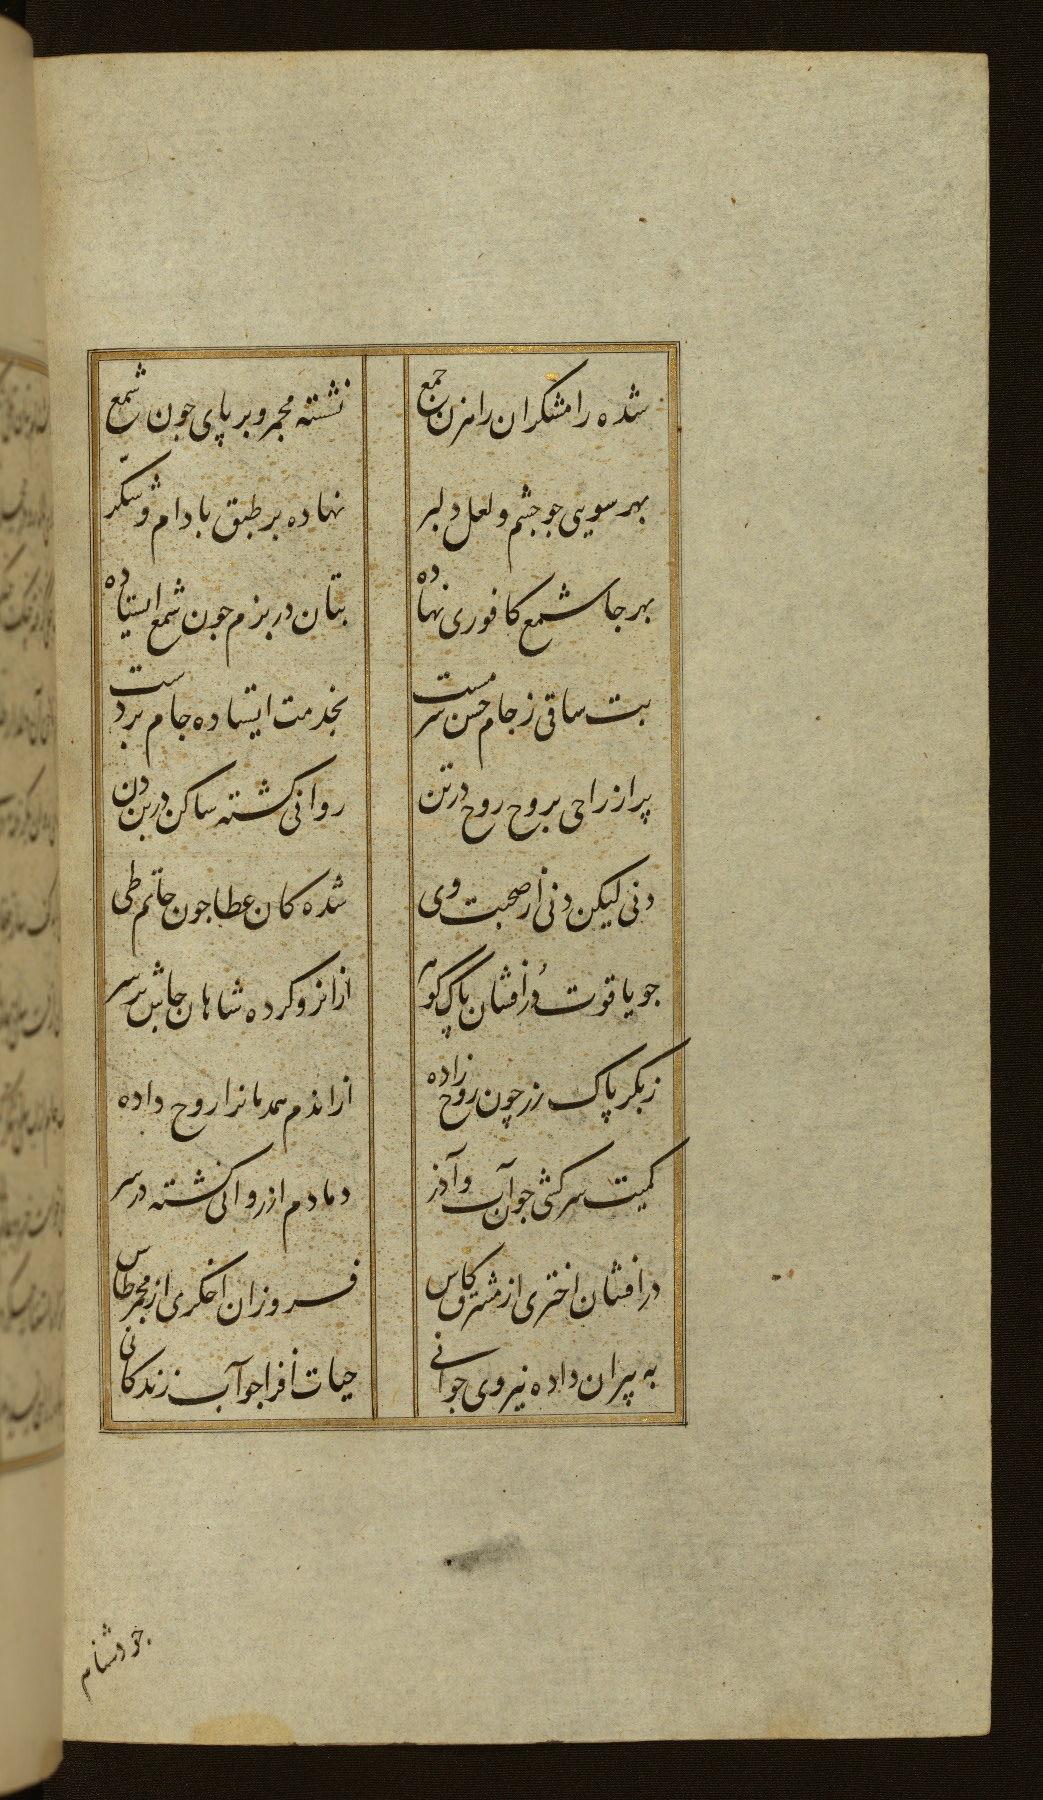 شده رامشکران رامزن جمع
نشته مجمر و بر پای جون شمع
بهر سویی جو جشم و لعل دلبر
نهاده بر طبق بادام و شکر
بهر جا شمع کافوری نهاده
بتان در بزم جون شمع ایستاده
بت ساقی ز جام حسن سرمست
بخدمت ایستاده جام بر دست
پر از راحی بروح روح در تن
روانی کشته ساکن در بن دن
دنی لیکن دنی از صحبت وی
شده کان عطا جون حاتم طی
جو یاقوت دُر افشان پاک گوهر
ازانرو کرده شاهان جاش بر سر
ز بکر پاک رز چون روح زاده
ازاندم همدمانرا روح داده
کمیت سرکشی جون آب و آذر
دمادم از روانی کشته در سر
در افشان اختری از مشرق کاس
فروزان اخکری از مجمر طاس
به پیران داده نیروی جوانی
حیات افزا جو آب زندکانی